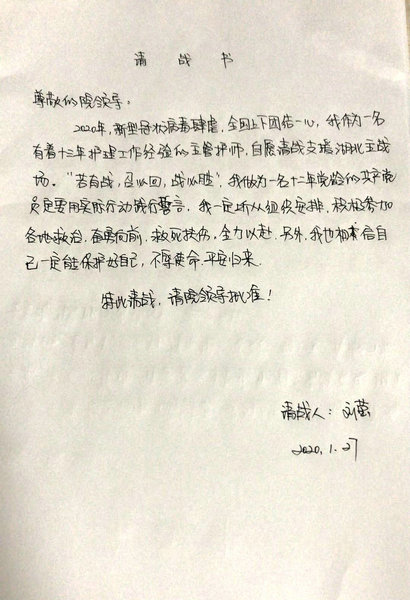 请战书
尊敬的院领导：
2020年，新型冠状病毒肆虐，全国上下团结一心，我作为一名
有着十三年护理工作经验的主管护师，自愿请战支援湖北主战
场。“若有战，召必回，战必胜”，我做为一名十二年党龄的共产党
员定要用实际行动践行誓言。我一定听从组织安排，积极参加
各地救治，奋勇向前，救死扶伤，全力以赴。另外，我也相信自
己一定能保护好自己，不辱使命，平安归来。
特此请战，请院领导批准！
请战人：刘萤
2020.1.27